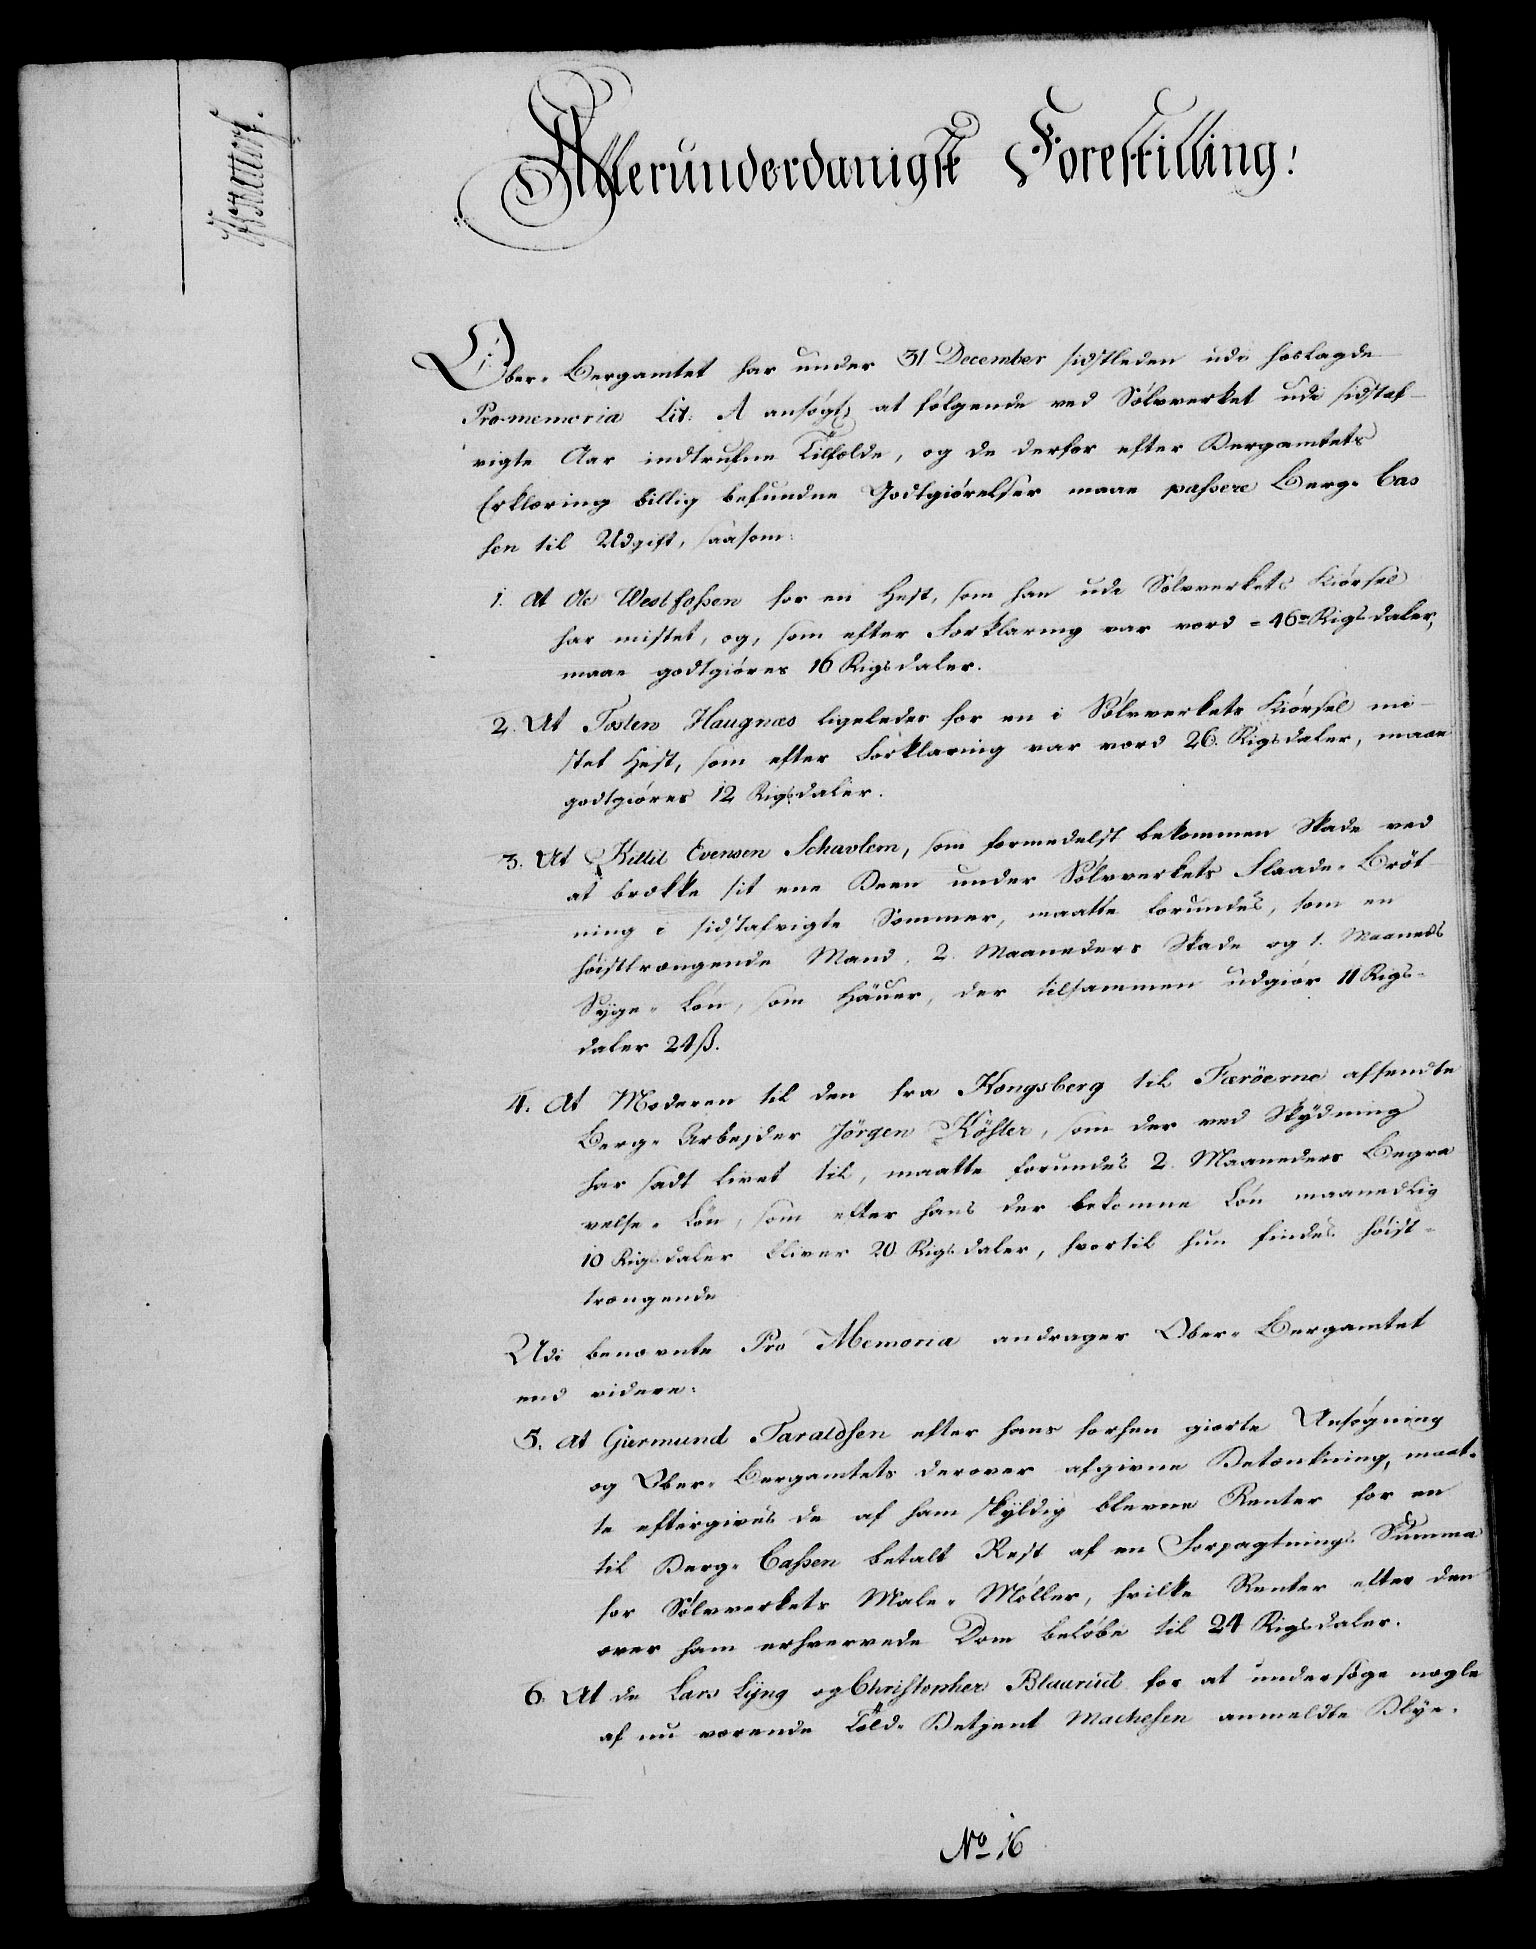 Allerunderdanigst Forestilling!
Ober-Bergamtet har under 31 December sidstleden udi hoslagde
Promemoria Lit. A ansøgt, at følgende ved Sølvverket udi sidstaf-
vigte Aar indtrufne Tilfælde, og de derfor efter Bergamtets
Erklæring billig befundne Godtgiørelser maae passere Berg-Cas
sen til Udgift, saasom:
1. At Ole Westfossen for en Hest, som han udi Sølvverkets Kiørsel
har mistet, og, som efter Forklaring var værd =46= Rigsdaler,
maae godtgiøres 16 Rigsdaler.
2. At Tosten Haugnæs ligeledes for en i Sølvverkets Kiørsel mi-
stet Hest, som efter Forklaring var værd 26. Rigsdaler, maae
godtgiøres 12 Rigsdaler.
3. At Kittil Evensen Schavlem, som formedelst bekommen Skade ved
at brække sit ene Been under Sølvverkets Flaade-Bröt
ning i sidstafvigte Sommer, maatte forundes, som en
høisttrængende Mand, 2. Maaneders Skade og 1. Maaneds
Syge-Løn, som Häuer, der tilsammen udgiør 11 Rigs-
daler 24 ß.
4. At Moderen til den fra Kongsberg til Færöerne afsendte
Berg-Arbejder Jörgen Köhler, som der ved Skydning
har sadt livet til, maatte forundes 2. Maaneders Begra
velse-Løn, som efter hans der bekomne Løn maanedlig
10 Rigsdaler bliver 20 Rigsdaler, hvortil hun findes høist-
trængende
Udi benævnte Pro Memoria andrager Ober-Bergamtet
end videre:
5. At Giermund Taraldsen efter hans forhen giorte Ansøgning
og Ober-Bergamtets derover afgivne Betænkning, maat-
te eftergives de af ham skyldig blevne Renter for en
til Berg-Cassen betalt Rest af en Forpagtnings Summa
for Sølvverkets Male-Møller, hvilke Renter efter den
over ham erhvervede Dom beløbe til 24 Rigsdaler.
6. At de Lars Lijng og Christopher Blaurud for at undersøge nogle
af nu værende Told-Betjent Mathesen anmeldte Blye-
No 16